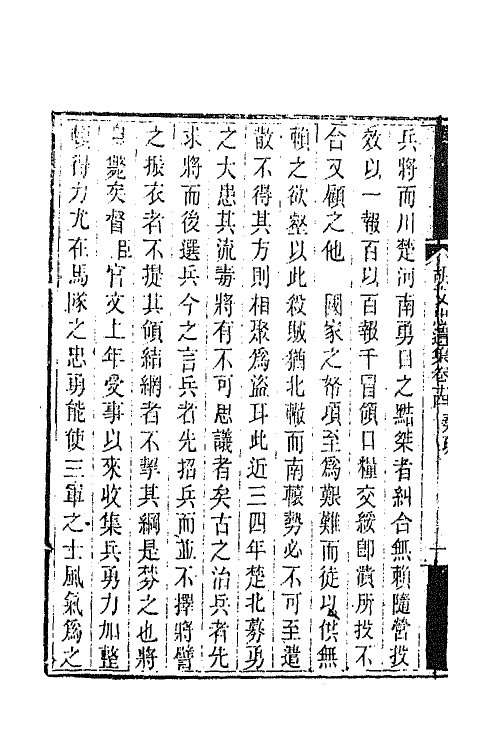 兵將而川楚河南勇目之點桀者糾合無賴隨營投
效以一報百以百報千冒領口糧交綏即潰所投不
合又顧之他　國家之帑項至爲艱難而徒以供無
賴之欲壑以此殺賊猶北轍而南轅勢必不可至遣
散不得其方則相聚爲盜耳此近三四年楚北募勇
之大患其流毒將有不可思議者矣古之治兵者先
求將而後選兵今之言兵者先招兵而並不擇將譬
之振衣者不提其領結網者不挈其綱是棼之也將
自斃矣督臣官文上年受事以來收集兵勇力加整
頓得力尤在馬隊之忠勇能使三軍之士風氣爲之
胡文忠公遺集卷十四　奏疏